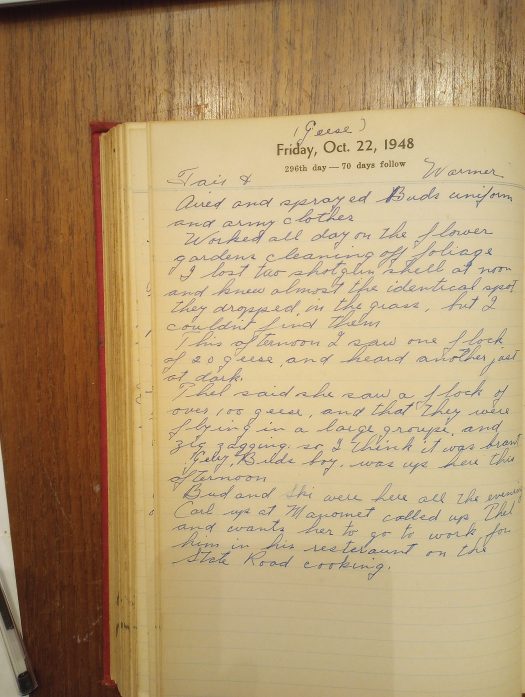 (Geese)
Friday, Oct. 22, 1948
296th day — 70 days follow
Fair & Warmer
Aired and sprayed Buds uniform
and army clothes
Worked all day on the flower
gardens cleaning off foliage
I lost two shotgun shell at noon
and knew almost the identical spot
they dropped, in the grass, but I
couldn't find them
This afternoon I saw one flock
of 20 geese, and heard another just
at dark.
Thel said she saw a flock of
over 100 geese, and that they were
flying in a large groupe, and
zig zagging. so I think it was brant
Buds boy. was up here this
afternoon
Bud and Ski were here all the evening
Carl up at Manomet called up Thel
and wants her to go to work for
him in his restaraunt on the
State Road cooking.